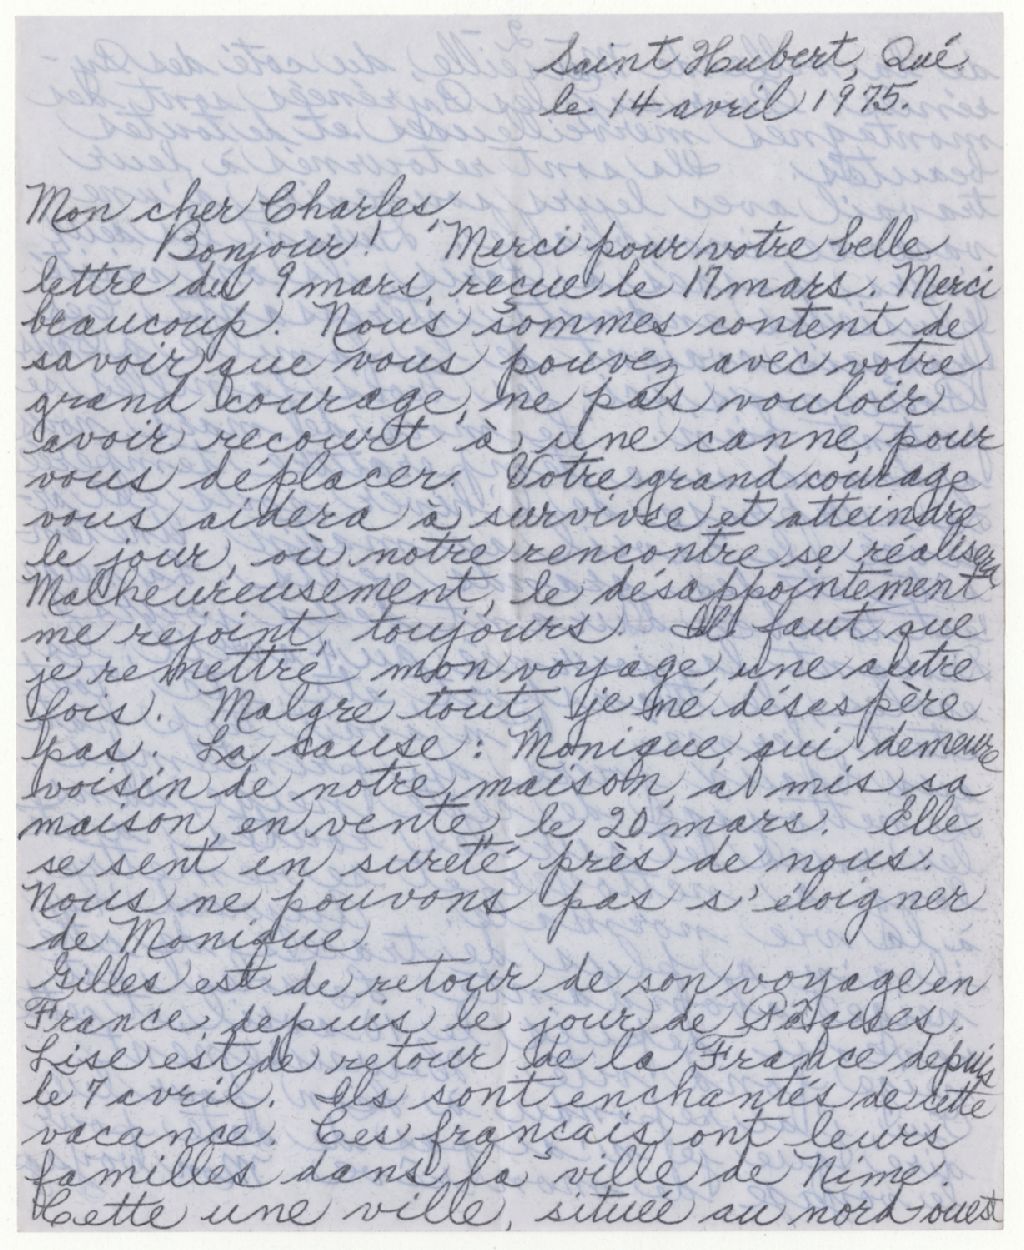 Saint Hubert, Qué.
le 14 avril 1975.
Mon cher Charles,
Bonjour! Merci pour votre belle
lettre du 9 mars, reçue le 17 mars. Merci
beaucoup. Nous sommes content de
savoir que vous pouvez avec votre
grand courage, ne pas vouloir
avoir recourt à une canne, pour
vous déplacer. Votre grand courage
vous aidera à survivre et atteindre
le jour, où notre rencontre se réalisera
Malheureusement, le désappointement
me rejoint, toujours. Il faut que
je remettre mon voyage, une autre
fois. Malgré tout, je me désespère
pas. La cause: Monique, qui demeure
voisin de notre maison, a mis sa
maison, en vente, le 20 mars. Elle
se sent en sureté près de nous.
Nous ne pouvons pas s'éloigner
de Monique
Gilles est de retour de son voyage en
France, depuis le jour de Pâques.
Lise est de retour de la France depuis
le 7 avril. Ils sont enchantés de cette
vacance. Ces français, ont leurs
familles dans la ville de Nime.
Cette une ville, située au nord-ouest